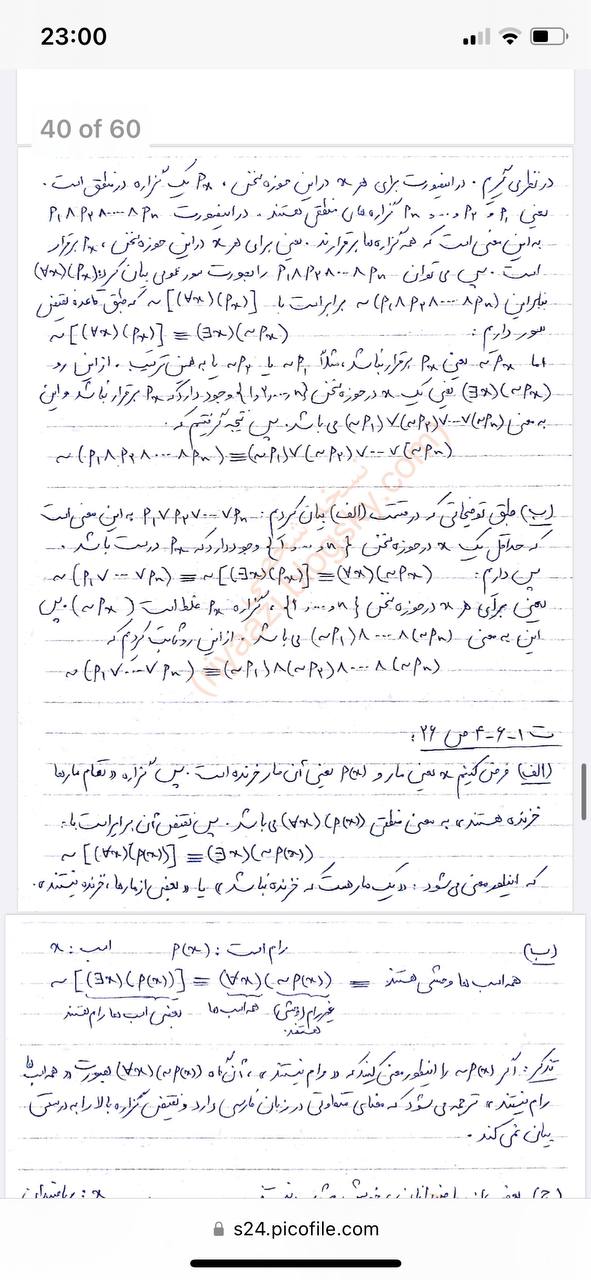 23:00
40 of 60
در نظر می‌گیریم. در اینصورت برای هر x در این حوزه سخن، Pₓ یک گزاره در منطق است.
یعنی P₁ و P₂ و ... و Pₙ گزاره‌های منطقی هستند. در اینصورت P₁∧P₂∧⋯∧Pₙ
به این معنی است که همه گزاره‌ها برقرارند. یعنی برای هر x در این حوزه سخن، Pₓ برقرار
است. پس می‌توان P₁∧P₂∧⋯∧Pₙ را بصورت سور عمومی بیان کرد: (∀x)(Pₓ)
بنابراین ~(P₁∧P₂∧⋯∧Pₙ) برابر است با ~[(∀x)(Pₓ)] که طبق قاعده نقیض
سور داریم: ~[(∀x)(Pₓ)] ≡ (∃x)(~Pₓ)
اما ~Pₓ یعنی Pₓ برقرار نباشد، مثلاً ~P₁ یا ~P₂ یا به همین ترتیب. از این رو
(∃x)(~Pₓ) یعنی یک x در حوزه سخن {۱,۲,...,n} وجود دارد که Pₓ برقرار نباشد و این
به معنی (~P₁)∨(~P₂)∨⋯∨(~Pₙ) می‌باشد. پس نتیجه گرفتیم که:
~(P₁∧P₂∧⋯∧Pₙ) ≡ (~P₁)∨(~P₂)∨⋯∨(~Pₙ)
(ب) طبق توضیحاتی که در قسمت (الف) بیان کردم: P₁∨P₂∨⋯∨Pₙ به این معنی است
که حداقل یک x در حوزه سخن {۱,...,n} وجود دارد که Pₓ درست باشد.
پس داریم: ~(P₁∨⋯∨Pₙ) ≡ ~[(∃x)(Pₓ)] ≡ (∀x)(~Pₓ)
یعنی برای هر x در حوزه سخن {۱,...,n}، گزاره Pₓ غلط است (~Pₓ). پس
این به معنی (~P₁)∧⋯∧(~Pₙ) می‌باشد. از این رو ثابت کردم که
~(P₁∨⋯∨Pₙ) ≡ (~P₁)∧(~P₂)∧⋯∧(~Pₙ)
ت ۱-۶-۴ ص ۲۶:
(الف) فرض کنیم x یعنی مار و P(x) یعنی آن مار خزنده است. پس گزاره «تمام مارها
خزنده هستند» به معنی منطقی (∀x)(P(x)) می‌باشد. پس نقیض آن برابر است با:
~[(∀x)(P(x))] ≡ (∃x)(~P(x))
که اینطور معنی می‌شود: «یک مار هست که خزنده نباشد» یا «بعضی از مارها، خزنده نیستند».
(ب) x: اسب P(x): رام است
~[(∃x)(P(x))] ≡ (∀x)(~P(x)) ≡ همه اسب‌ها وحشی هستند
بعضی اسب‌ها رام هستند همه اسب‌ها غیر رام (وحشی) هستند
تذکر: اگر ~P(x) را اینطور معنی کنید که «رام نیستند»، آن‌گاه (∀x)(~P(x)) بصورت «همه اسب‌ها
رام نیستند» ترجمه می‌شود که معنای متفاوتی در زبان فارسی دارد و نقیض گزاره بالا را به درستی
بیان نمی‌کند.
s24.picofile.com